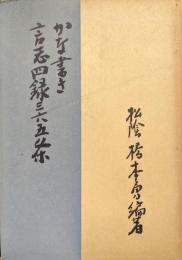 かな書き
言志四録三六五条
松陰 橋本勇編著